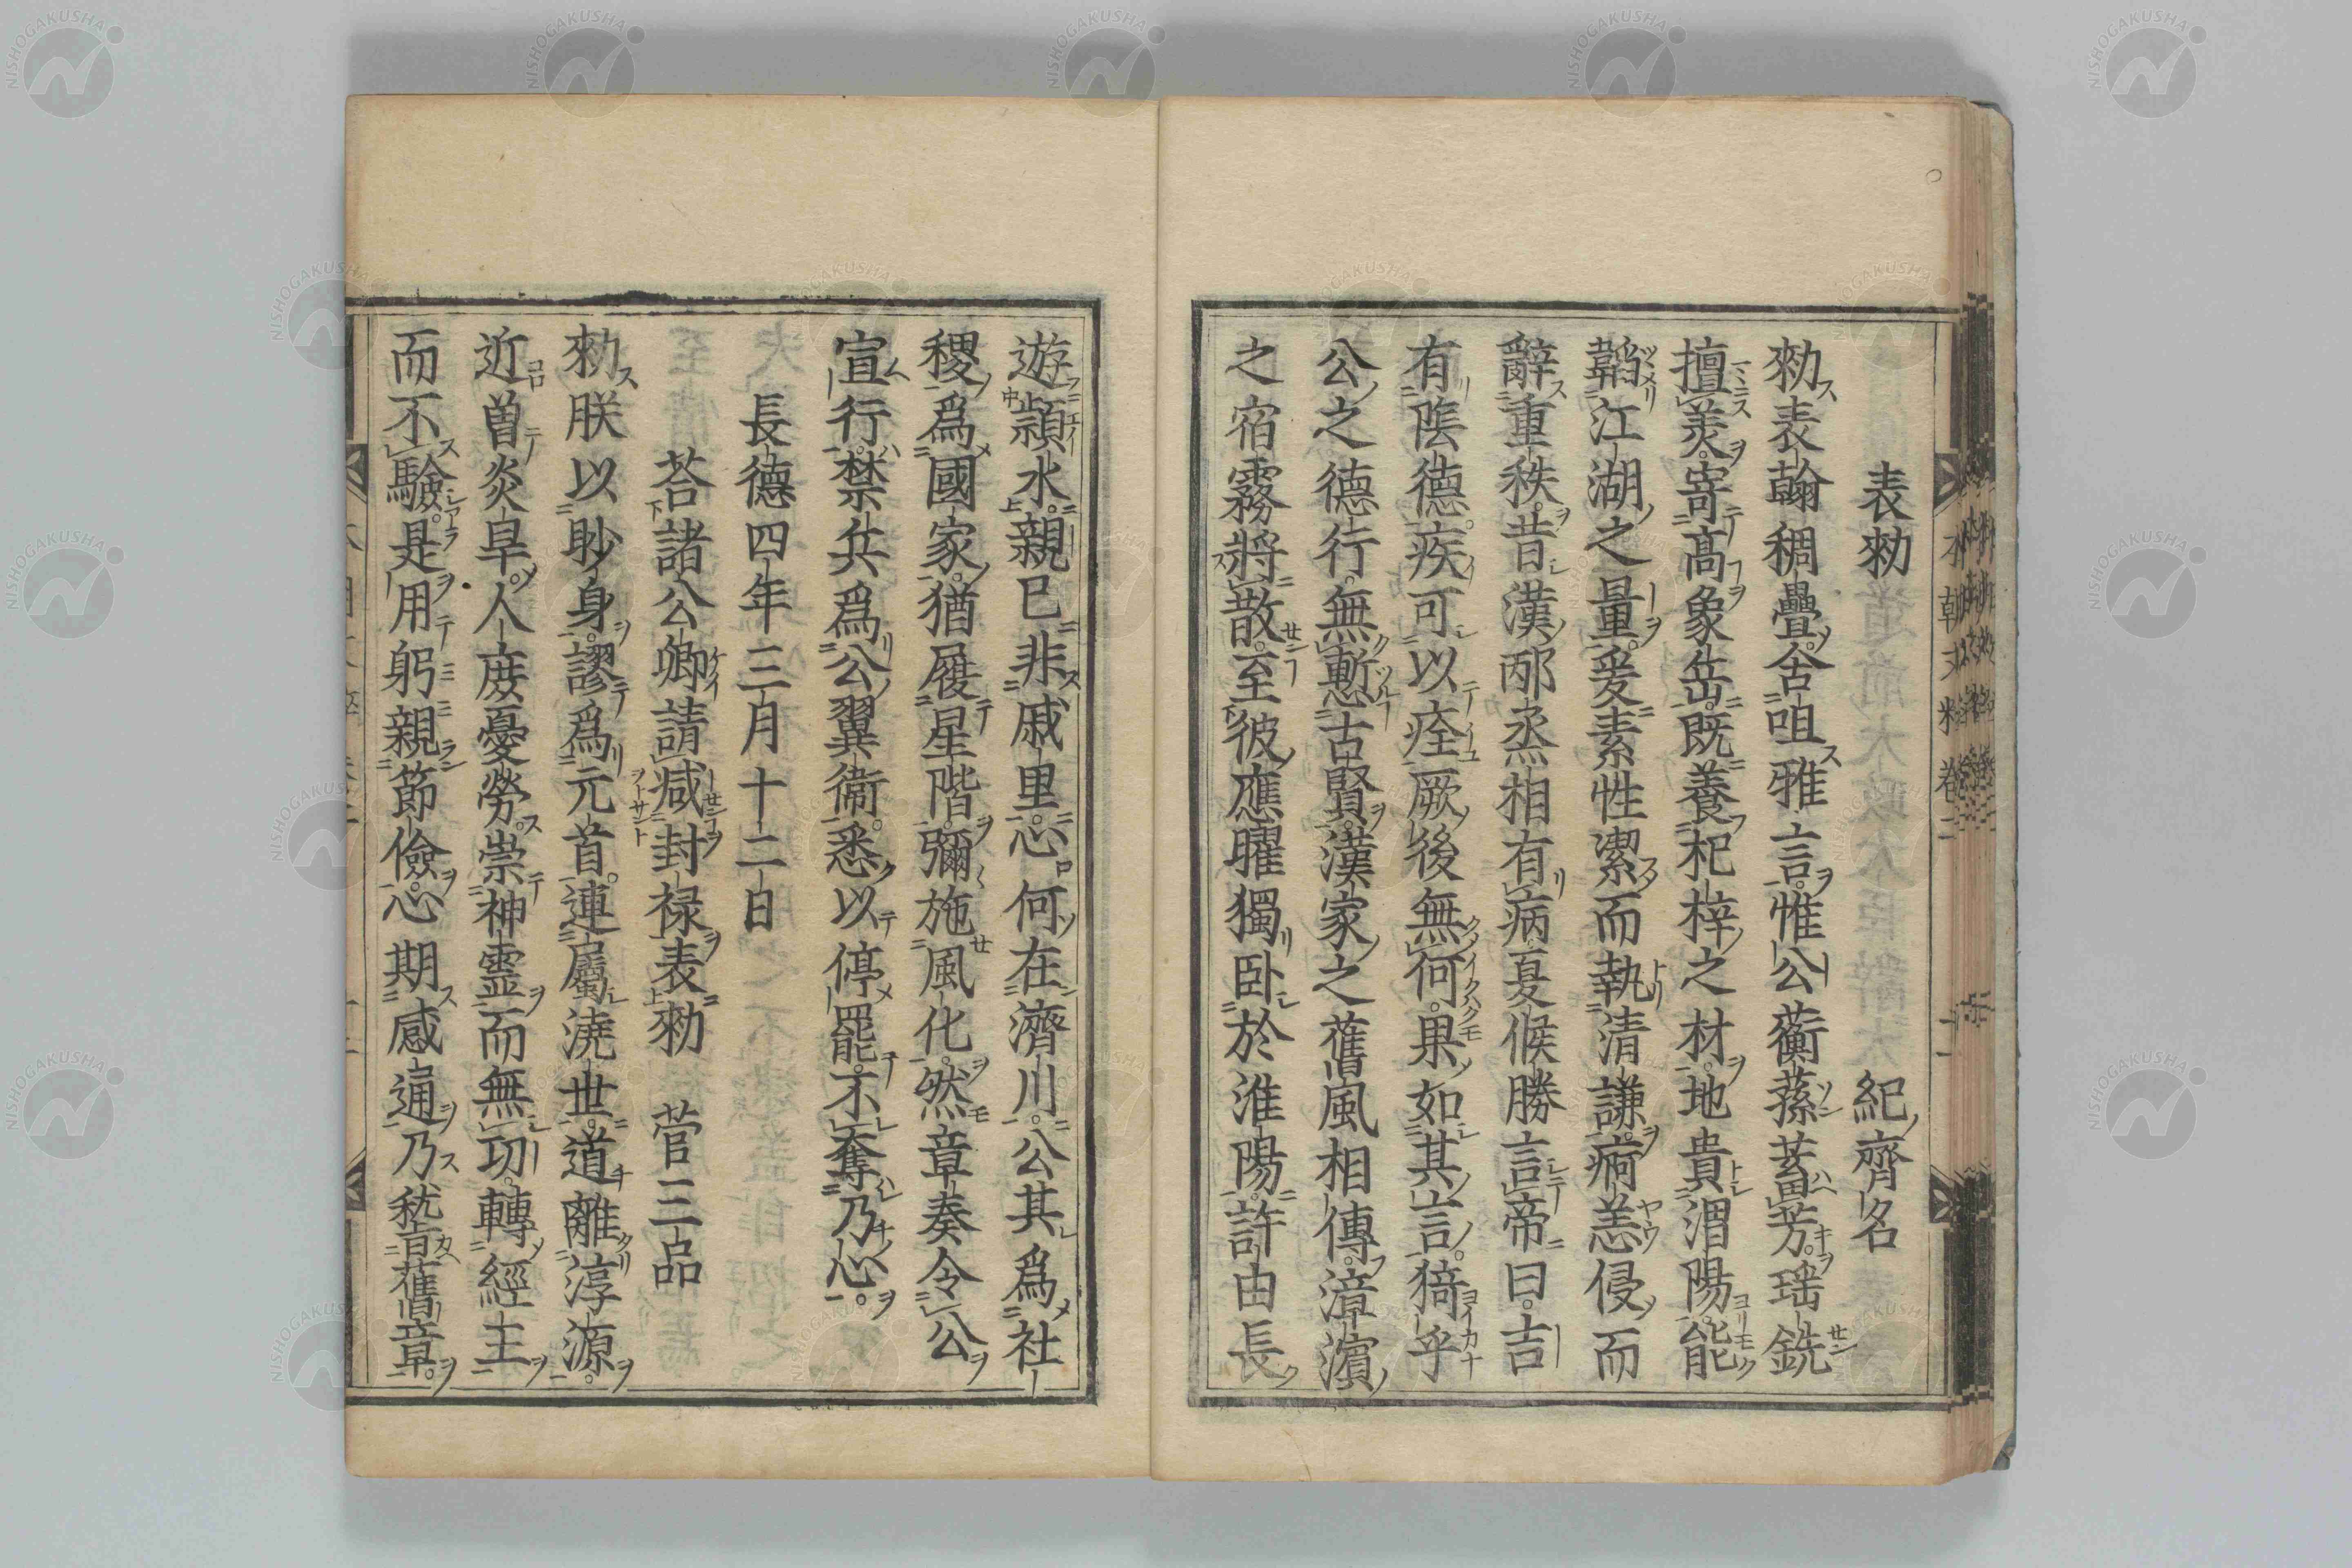 表勑 紀齊名
勑表翰稠疊舍咀雅言惟公蘅蓀蓄芳瑶銑
擅美寄高象岳既養杞梓之材地貴渭陽能
韜江湖之量爰素性潔而執清謙痾恙侵而
辭重秩昔漢邴烝相有病夏候勝言帝曰吉
有陰德疾可以痊厥後無何果如其言猗乎
公之德行無慙古賢漢家之舊風相傳漳濵
之宿霧將散至彼應曜獨卧於淮陽許由長
遊潁水親已非戚里心何在濟川公其爲社
稷爲國家猶履星階彌施風化然章奏令公
宣行禁兵爲公翼衞悉以停罷不奪乃心
長德四年三月十二日
荅諸公卿請减封禄表勑 菅三品
勑朕以眇身謬爲元首連屬澆世道離淳源
近曽炎旱人庶憂勞崇神霊而無功轉經王
而不驗是用躬親節儉心期感通乃嵇舊章
本朝文粹卷二